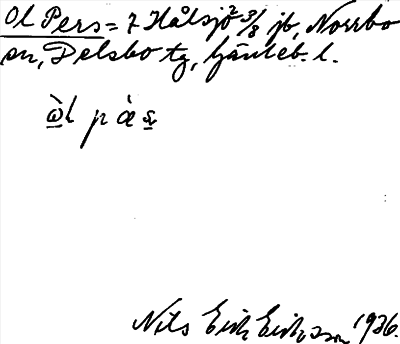 Ol Pers = 7 Hålsjö 2 3/8 jb, Norrbo
sn, Delsbo tg, Gävleb. l.
ὼl p ὰ s
Nils Erik Eriksson 1926.